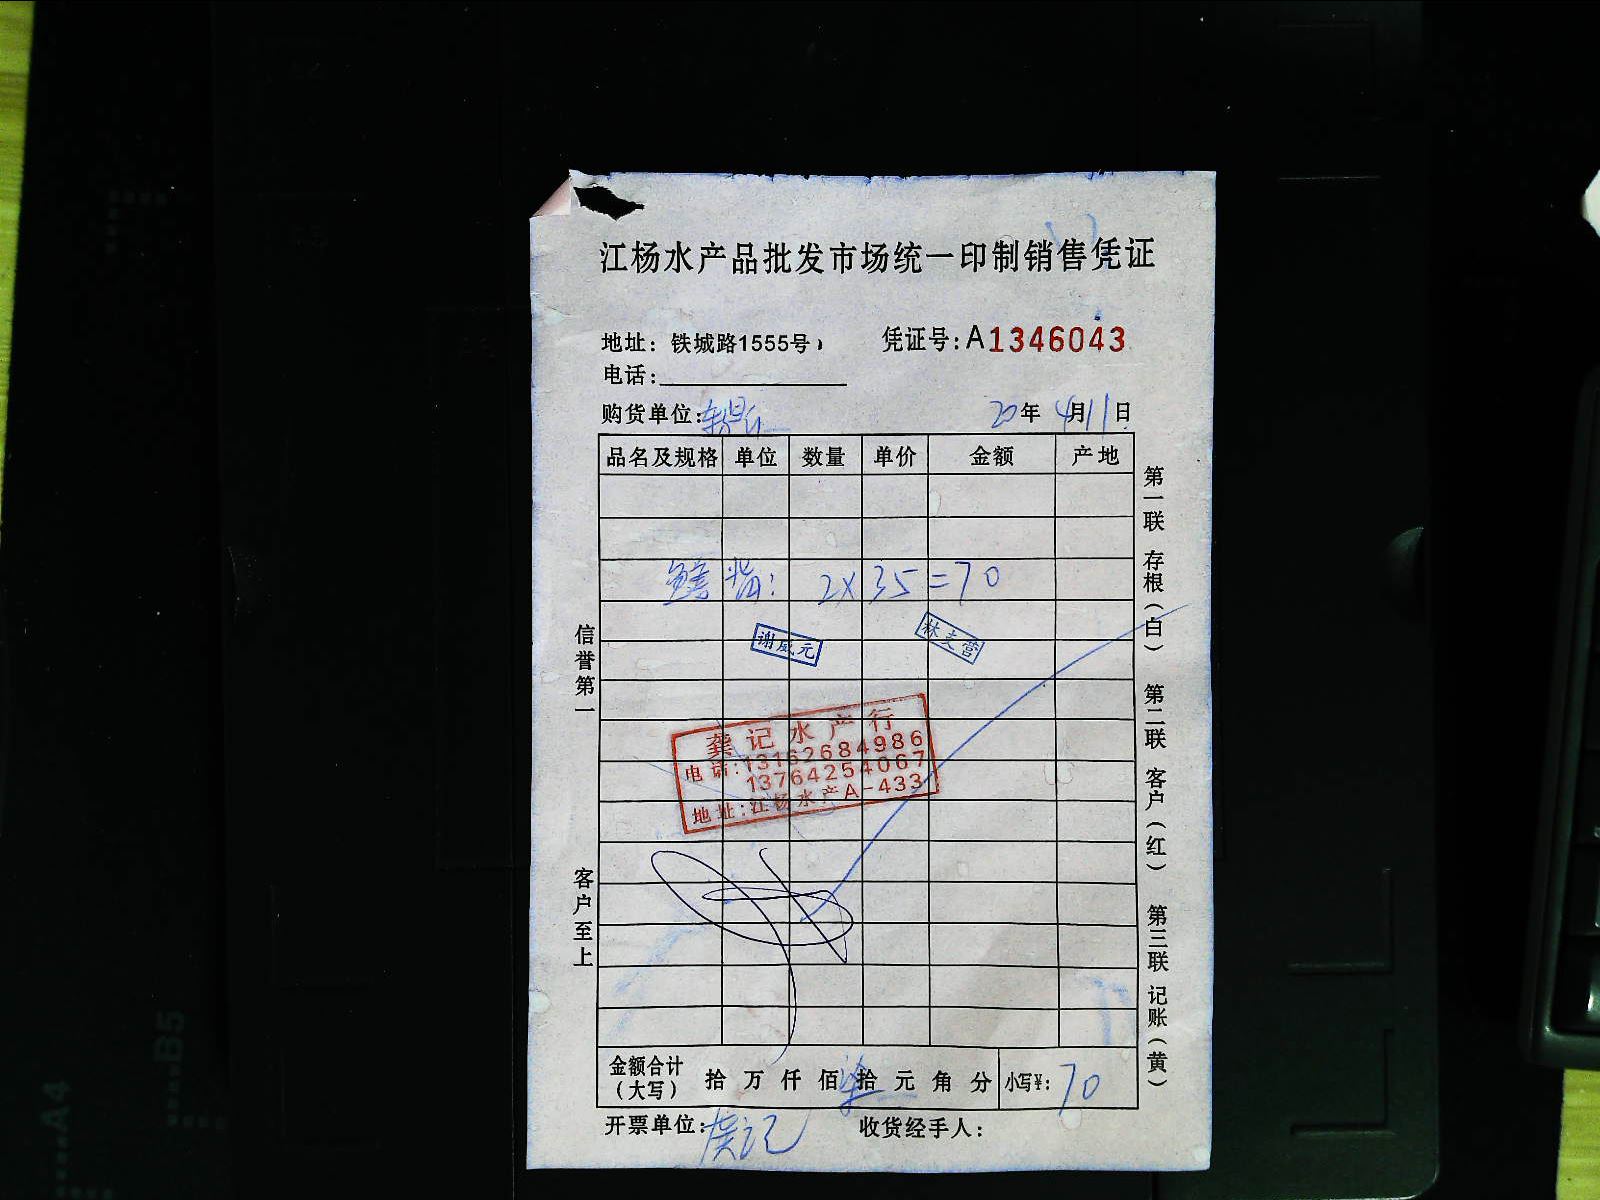 江杨水产品批发市场统一印制销售凭证
地址：铁城路1555号
凭证号：A1346043
电话：
购货单位：
20年4月11日
品名及规格 单位 数量 单价 金额 产地
2×35=70
谢威元
林支营
龚记水产行
电话：13162684986
13764254067
地址：江杨水产A-433
信誉第一 客户至上
第一联 存根（白） 第二联 客户（红） 第三联 记账（黄）
金额合计（大写） 拾 万 仟 佰 柒拾 元 角 分 小写¥：70
开票单位：龚记
收货经手人：